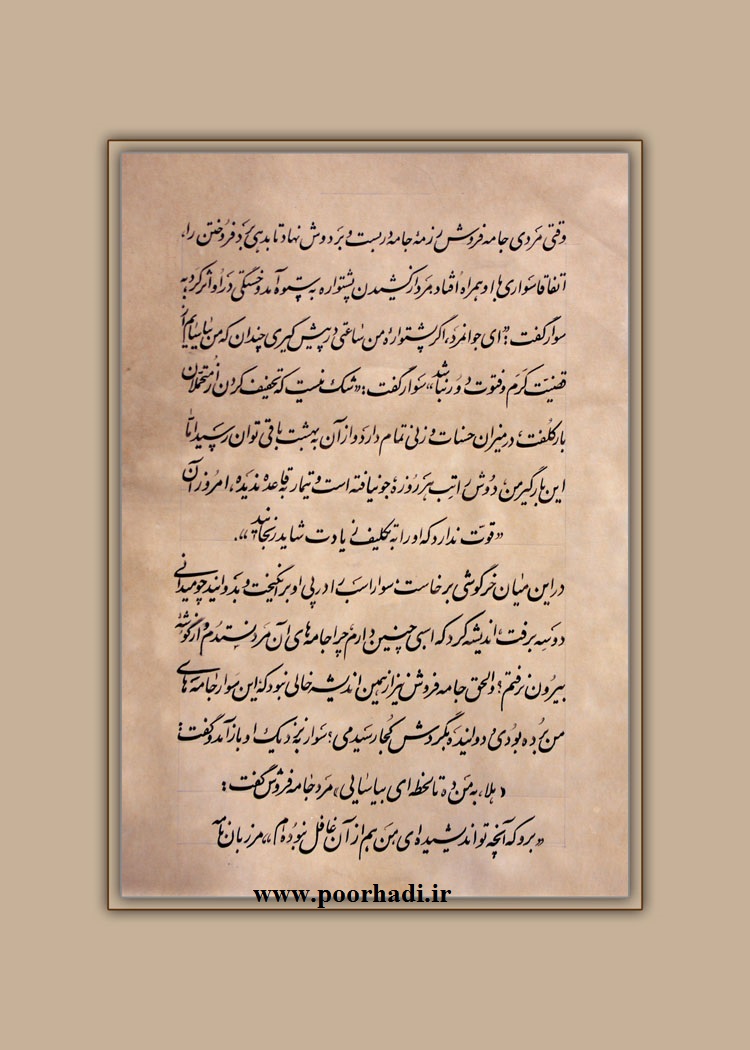 وقتی مردی جامه فروش رزمهٔ جامه در بست و بر دوش نهاد تا بدهی برد فروختن را،
اتفاقا سواری با او همراه افتاد، مرد از کشیدن پشتواره به ستوه آمد و خستگی در او اثر کرد، به
سوار گفت: «ای جوانمرد، اگر پشتوارهٔ من ساعتی در پیش گیری چندان که من بیاسایم از
قضیت کرم و فتوت دور نباشد» سوار گفت: «شک نیست که تخفیف کردن از متحملان
بار کلفت، در میزان حسنات وزنی تمام دارد و از آن به بهشت باقی توان رسید اما
این بارگیر من، دوش راتب هر روزه جو نیافته است و تیمار به قاعده ندیده، امروز آن
قوت ندارد که او را به تکلیف زیادت شاید رنجانید».
در این میان خرگوشی برخاست؛ سوار اسب را در پی او برانگیخت و بدوانید چو میدانی
دو سه برفت، اندیشه کرد که اسبی چنین دارم چرا جامه های آن مرد نستدم و از گوشه
بیرون نرفتم؟ والحق جامه فروش نیز از همین اندیشه خالی نبود که این سوار جامه های
من برده بودی دوانیده بگردش کجا رسیدمی؟ سوار به نزدیک او باز آمد و گفت:
«هلا، به من ده تا لحظه ای بیاسایی» مرد جامه فروش گفت:
«برو که آنچه تو اندیشیده ای من هم از آن غافل نبوده ام» مرزبان نامه
www.poorhadi.ir